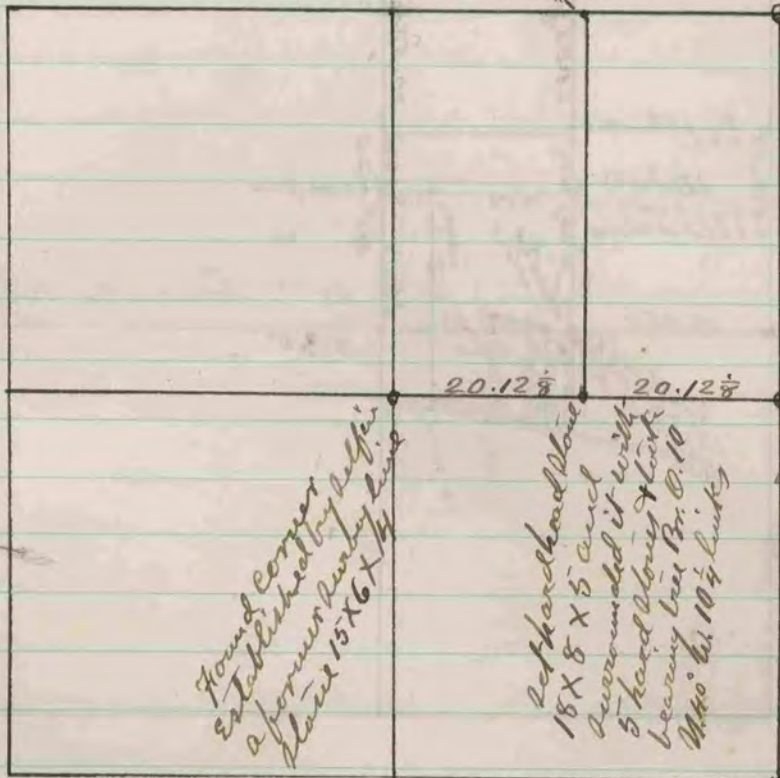 20.12⅛ 20.12⅛
Found corner
Established by self in
a former survey lime
stone 15 X 6 X 4
Set hardhead stone
18 X 8 X 5 and
surrounded it with
5 hard stones & took
bearing tree Br. O. 10
N.40° W. 10¼ links